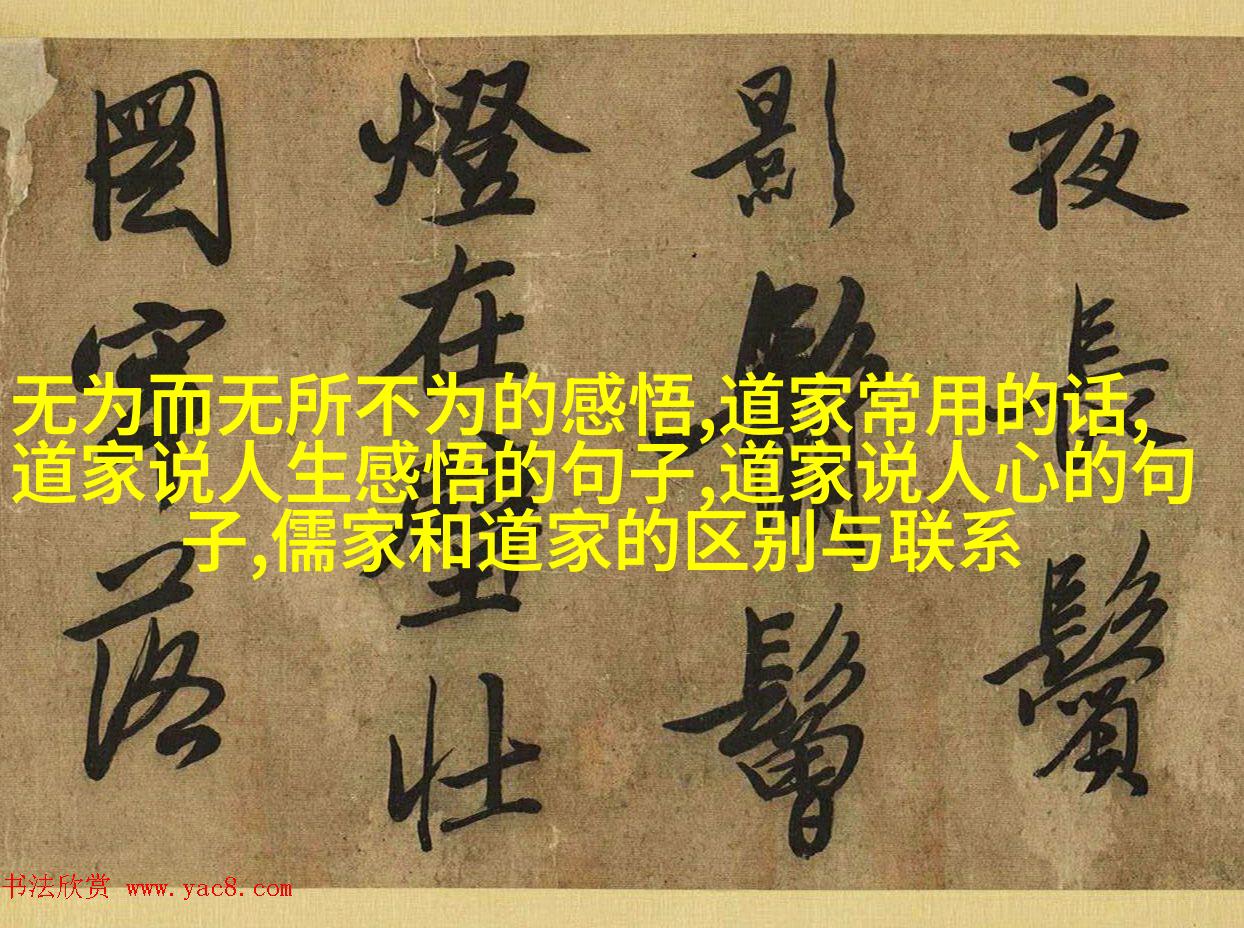 无为而无所不为的感悟,道家常用的话,
道家说人生感悟的句子,道家说人心的句
子,儒家和道家的区别与联系
夜長鬢
影鬅鬙
燈在壁壯
圖牢落
书法欣赏 www.yac8.com